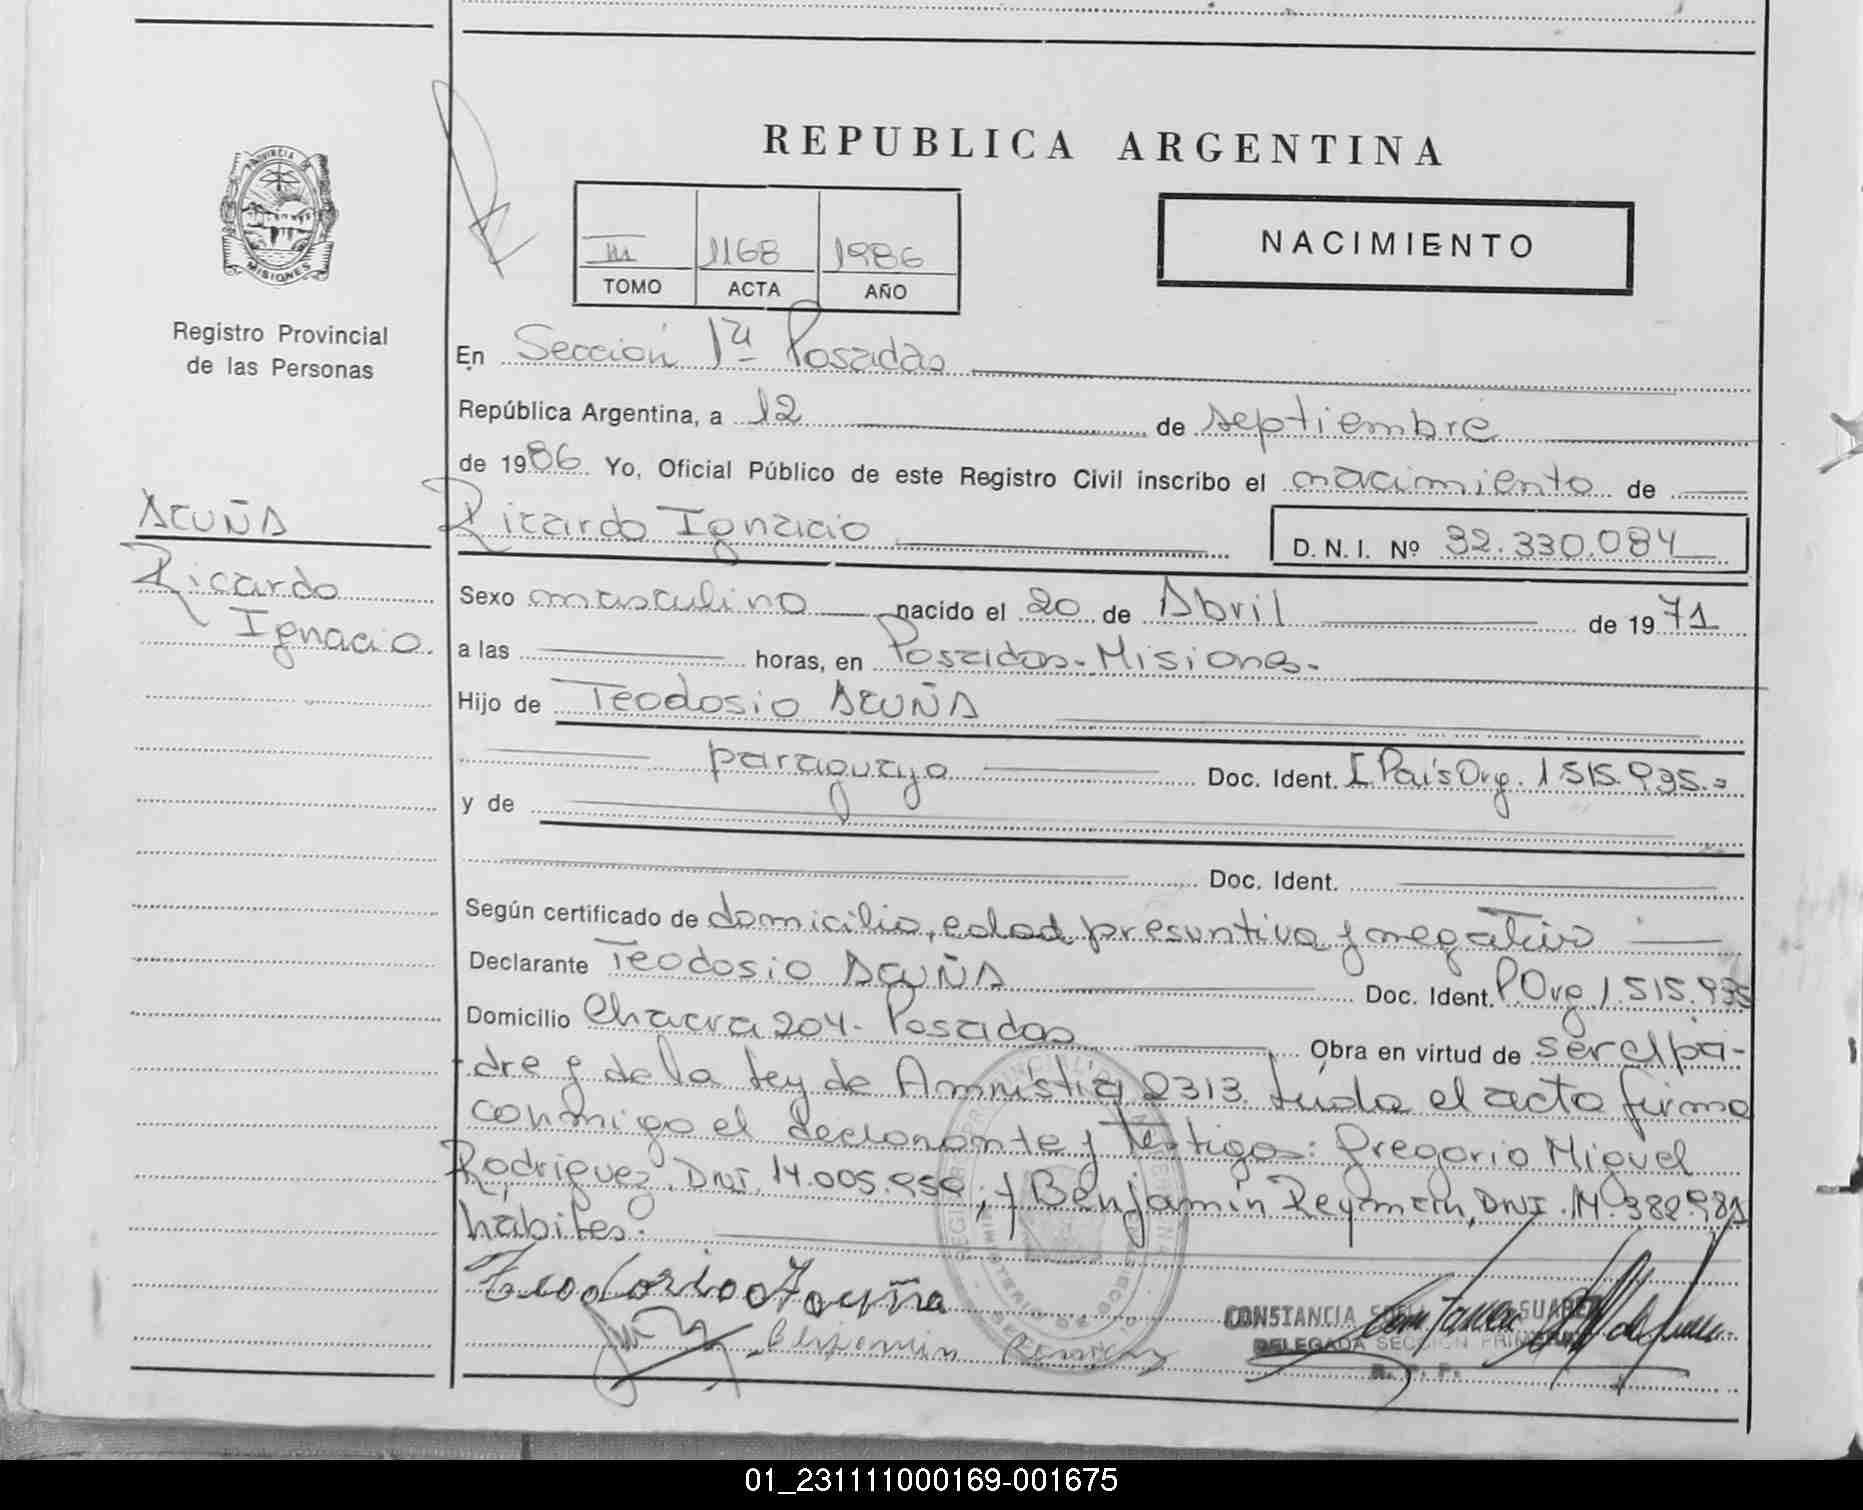 REPUBLICA ARGENTINA
PROVINCIA
MISIONES
Registro Provincial
de las Personas
III 1168 1986
TOMO ACTA AÑO
NACIMIENTO
En Sección 1ª Posadas
República Argentina, a 12 de septiembre
de 1986 Yo, Oficial Público de este Registro Civil inscribo el nacimiento de
ACUÑA
Ricardo Ignacio D.N.I. Nº 32.330.084
Ricardo
Ignacio.
Sexo masculino nacido el 20 de Abril de 1971
a las horas, en Posadas-Misiones.
Hijo de Teodosio ACUÑA
paraguayo Doc. Ident. I País Org. 1515.935.=
y de
Doc. Ident.
Según certificado de domicilio, edad presuntiva y negativo
Declarante Teodosio ACUÑA Doc. Ident. P.Org 1.515.935
Domicilio Chacra 204- Posadas Obra en virtud de ser el pa-
dre y de la Ley de Amnistía 2313. Leída el acta firma
conmigo el declarante y testigos: Gregorio Miguel
Rodriguez, DNI. 14.005.959, y Benjamín Reyman, DNI. 14.382.981
habiles.
Teodosio Acuña
Benjamin
CONSTANCIA SUAREZ
DELEGADA SECCION PRIMERA
R. P. P.
01_231111000169-001675